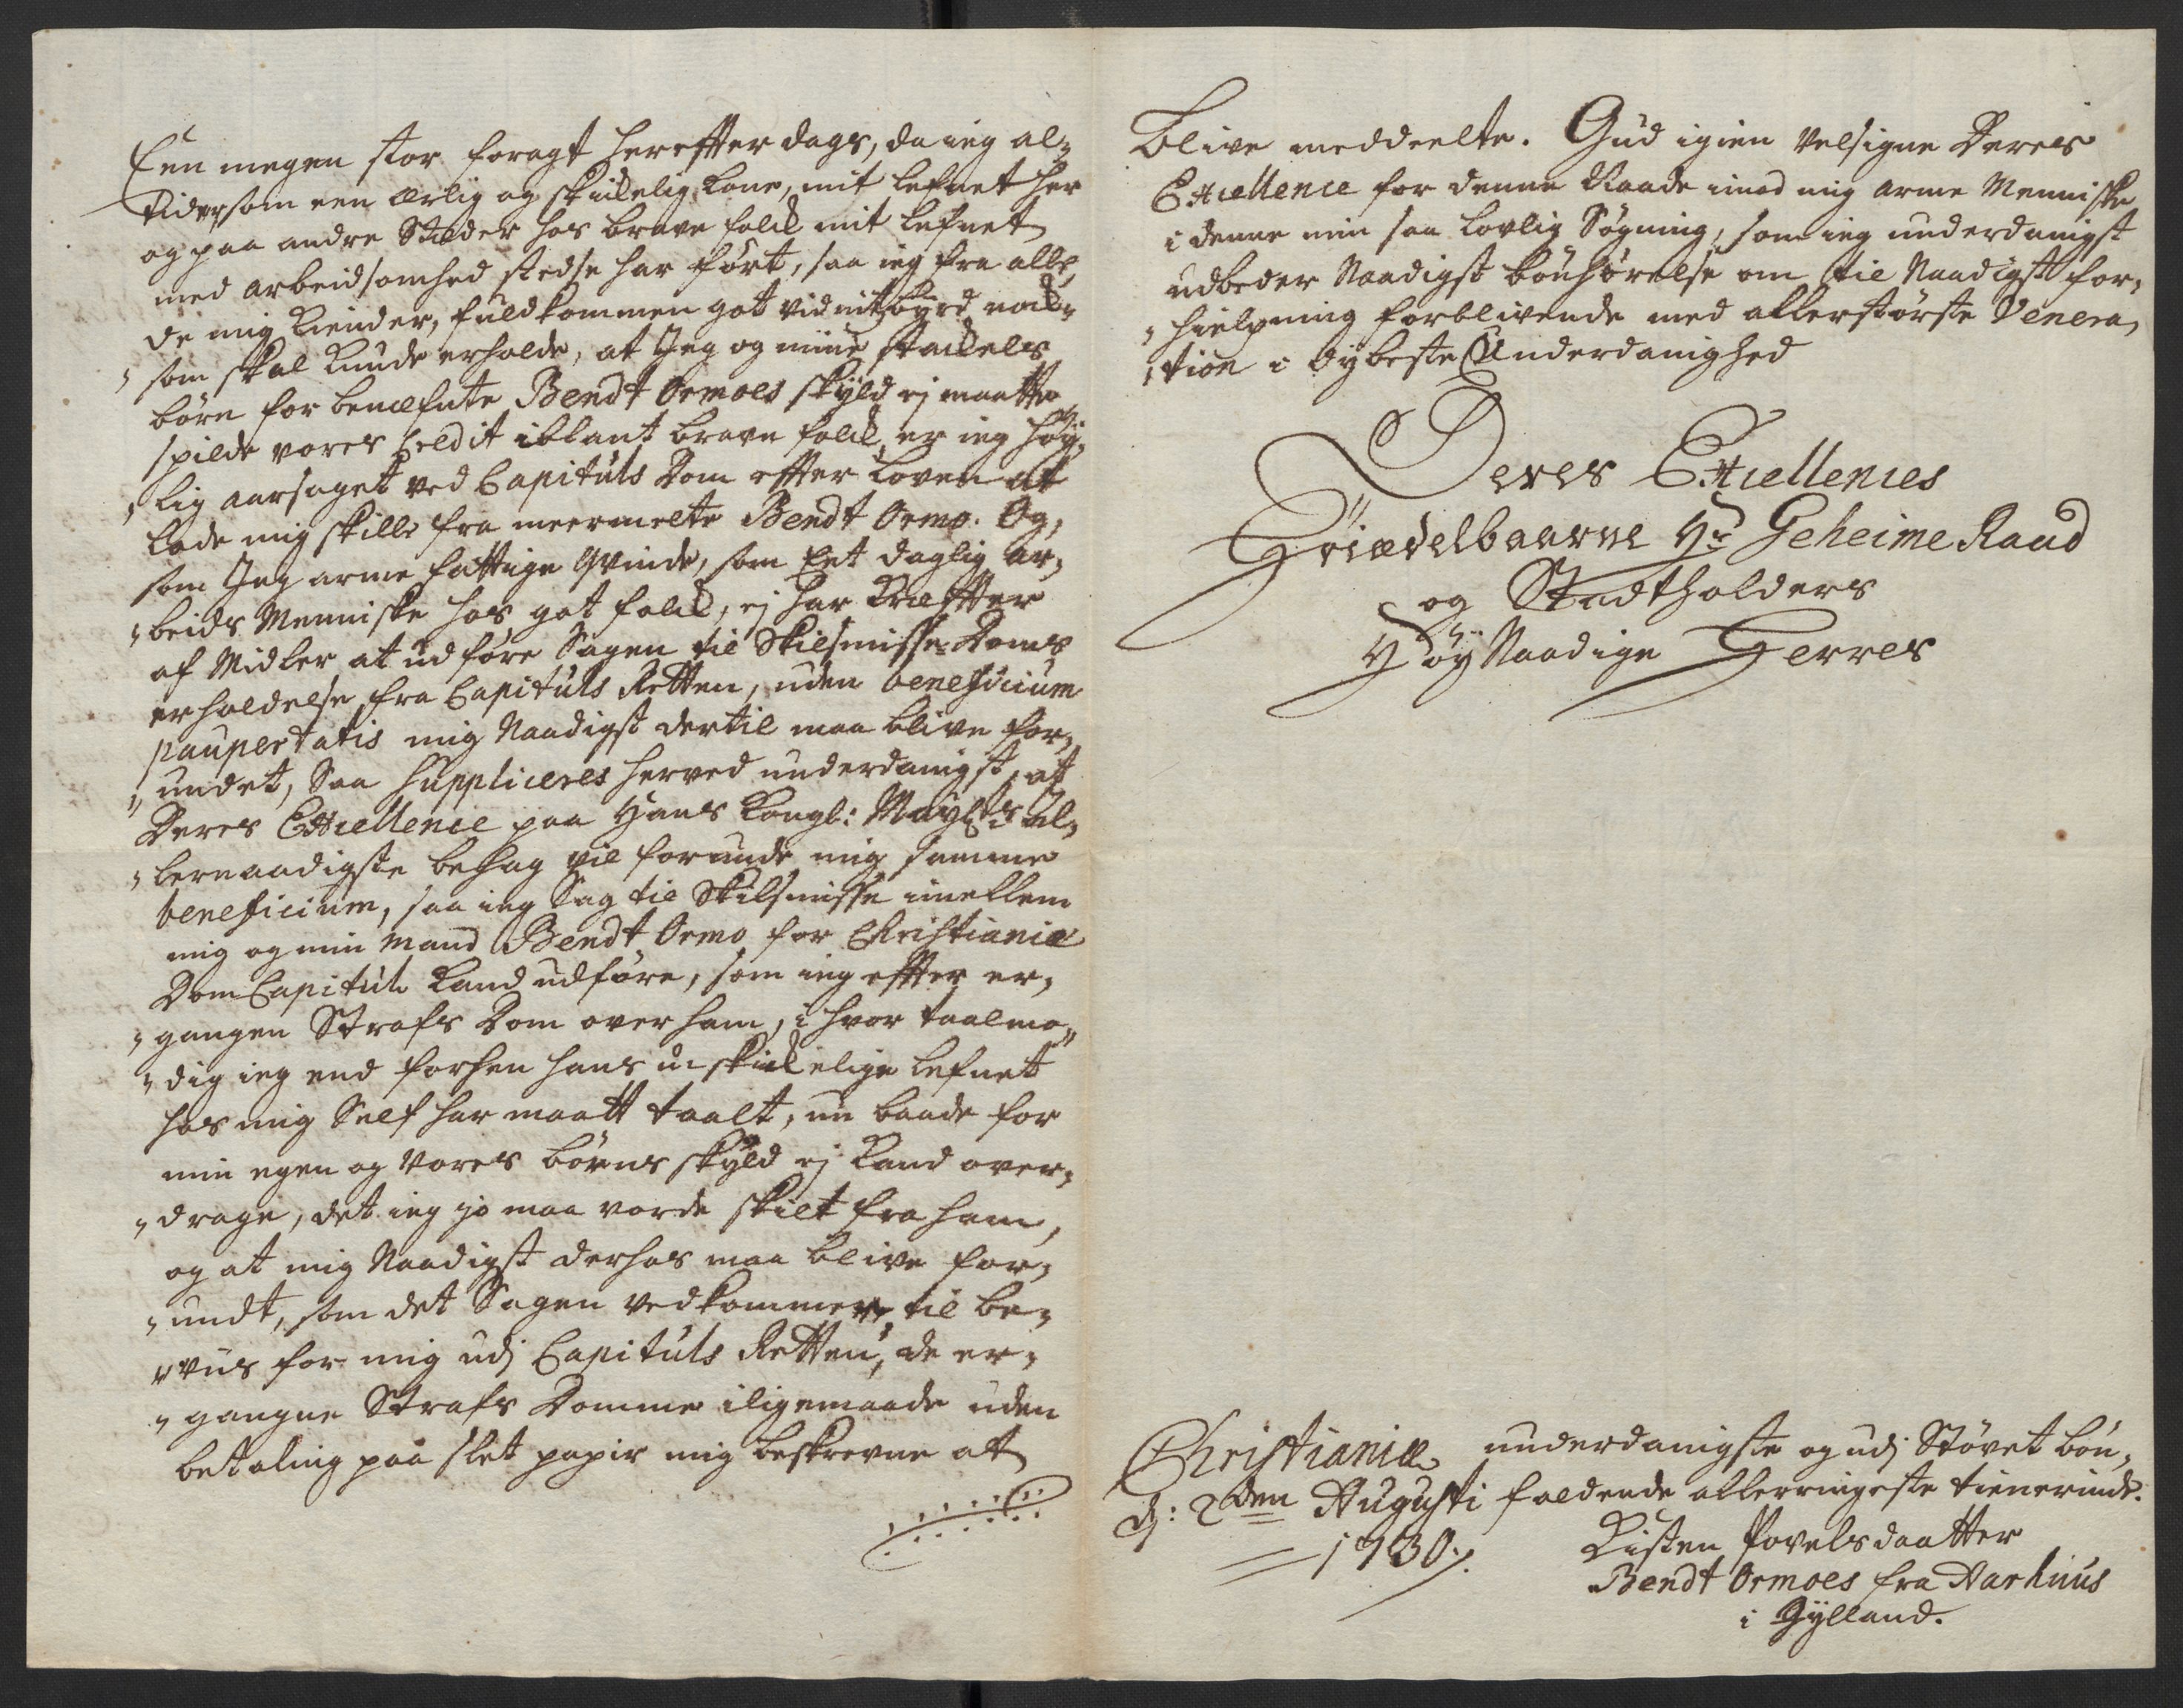 Een megen stor foragt hereffter dags, da ieg al-
tider, som een ærlig og skickelig Kone, mit lefnet her
og paa andre Stæder hos brave folck mit lefnet
med arbeidsomhed stedse har ført, saa ieg fra alle,
de mig kiender, fuldkommen got vidnisbyrd
som skal kunde erholde, at Jeg og mine stackels
børn for benæfnte Bendt Ormoes skyld ej maatte
spilde vores Credit iblant brave folck, er ieg høy-
lig aarsaget ved Capituls Dom effter Loven at
lade mig skille fra meermelte Bendt Ormo. Og,
som Jeg arme fattige Qvinde, som Eet daglig ar-
beids Menniske hos got folck, ej har Kræffter
af Midler at udføre Sagen til Skilsmisse Doms
erholdelse fra Capituls Retten, uden beneficium
paupertatis mig Naadigst dertil maa blive for-
undet, Saa Suppliceres herved underdanigst, at
Deres Excellence paa Hans Kongl: Mayts al-
lernaadigste behag vil forunde mig samme
beneficium, saa ieg Sag til Skilsmisse imellem
mig og min Mand Bendt Ormo for Christianiæ
Dom Capitul kand udføre, som ieg effter er-
gangen Strafs Dom over ham, i hvor taalmo-
dig ieg end forhen hans uskickelige lefnet
hos mig Self har maatt taalt, nu baade for
min egen og vores børns skyld ej kand over-
drage, det ieg jo maa vorde skilt fra ham,
og at mig Naadigst derhos maa blive for-
undt, som det Sagen vedkommer, til be-
viis for mig udj Capituls Retten, de er-
gangne Strafs Domme iligemaade uden
betaling paa slet papir mig beskrevne at
blive meddeelte. Gud igien velsigne Deres
Excellence for denne Naade imod mig arme Menniske
i denne min saa lovlig Søgning, som ieg underdanigst
udbeder Naadigst bønhørelse om til Naadigst for-
hielpning forblivende med allerstørste Venera-
tion i dybeste Underdanighed
Deres Excellences
Friædelbaarne Hr Geheime Raad
og Stadtholders
Høy Naadige Herres
Christianiæ
d: 2den Augusti
1730.
underdanigste og udj Støvet bøn-
faldende allerringeste tienerinde.
Kisten Povelsdaatter
Bendt Ormoes fra Aarhuus
i Jylland.